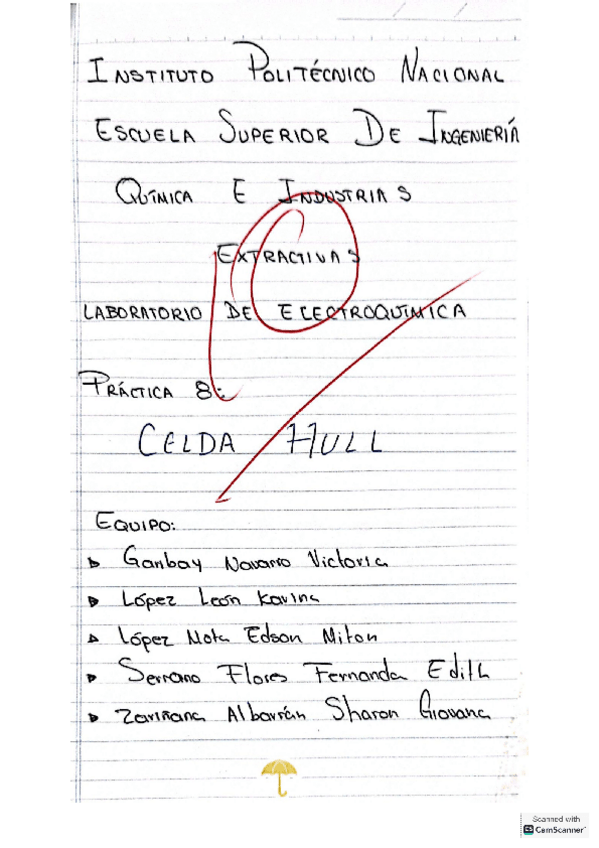 INSTITUTO POLITÉCNICO NACIONAL
ESCUELA SUPERIOR DE INGENIERÍA
QUÍMICA E INDUSTRIAS
EXTRACTIVAS
LABORATORIO DE ELECTROQUÍMICA
PRÁCTICA 8:
CELDA HULL
EQUIPO:
Garibay Navarro Victoria
López León Karina
López Mota Edson Milton
Serrano Flores Fernanda Edith
Zariñana Albarrán Sharon Giovana
Scanned with
CS CamScanner